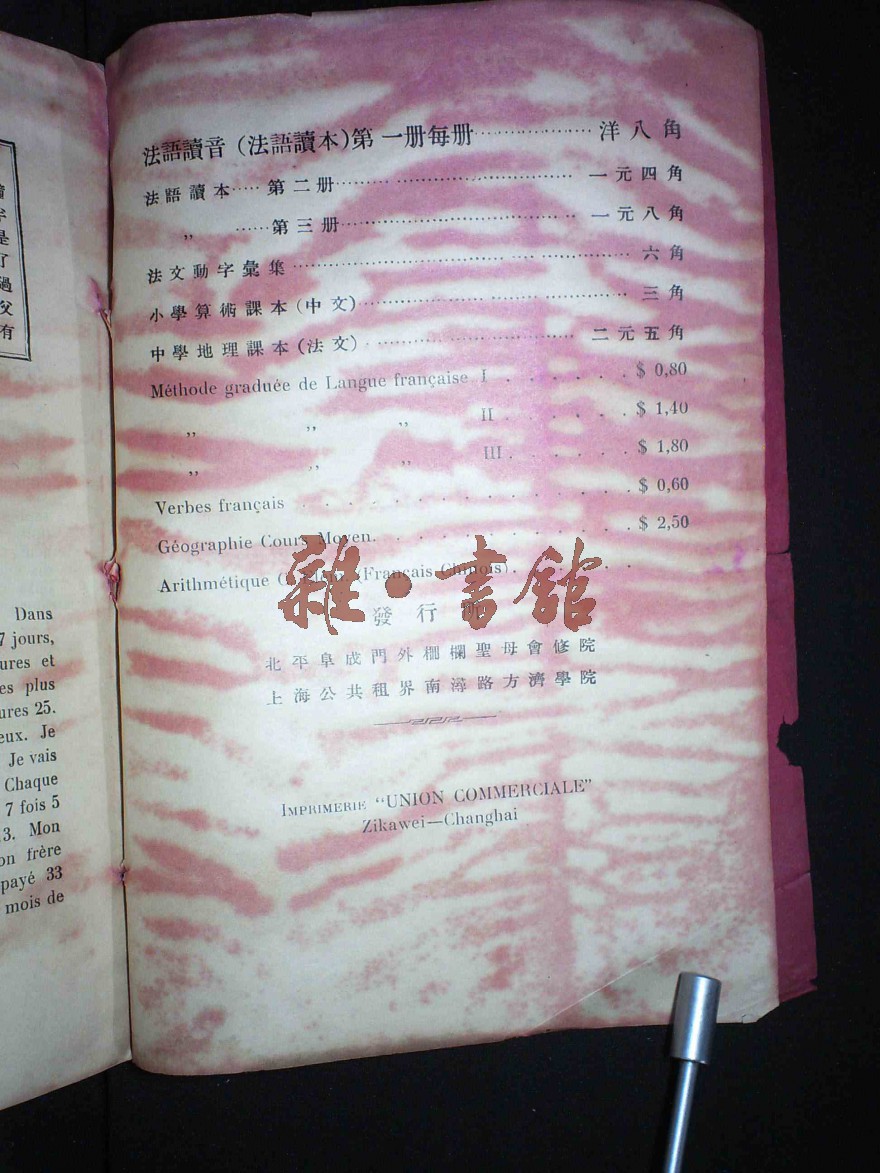 法語讀音 (法語讀本) 第一册每册 洋八角
法語讀本 第二册 一元四角
,, 第三册 一元八角
法文動字彙集 六角
小學算術課本 (中文) 三角
中學地理課本 (法文) 二元五角
Méthode graduée de Langue française I . . . . . . $ 0,80
,, ,, ,, II . . . . . . $ 1,40
,, ,, ,, III . . . . . . $ 1,80
Verbes français . . . . . . $ 0,60
Géographie Cours Moyen. . . . . . $ 2,50
Arithmétique (Français Chinois). . . .
雜·書館
發行所
北平阜成門外柵欄聖母會修院
上海公共租界南潯路方濟學院
IMPRIMERIE "UNION COMMERCIALE"
Zikawei—Changhai
是
了
過
父
有
Dans
7 jours,
ures et
es plus
ures 25.
eux. Je
Je vais
Chaque
7 fois 5
3. Mon
on frère
payé 33
mois de